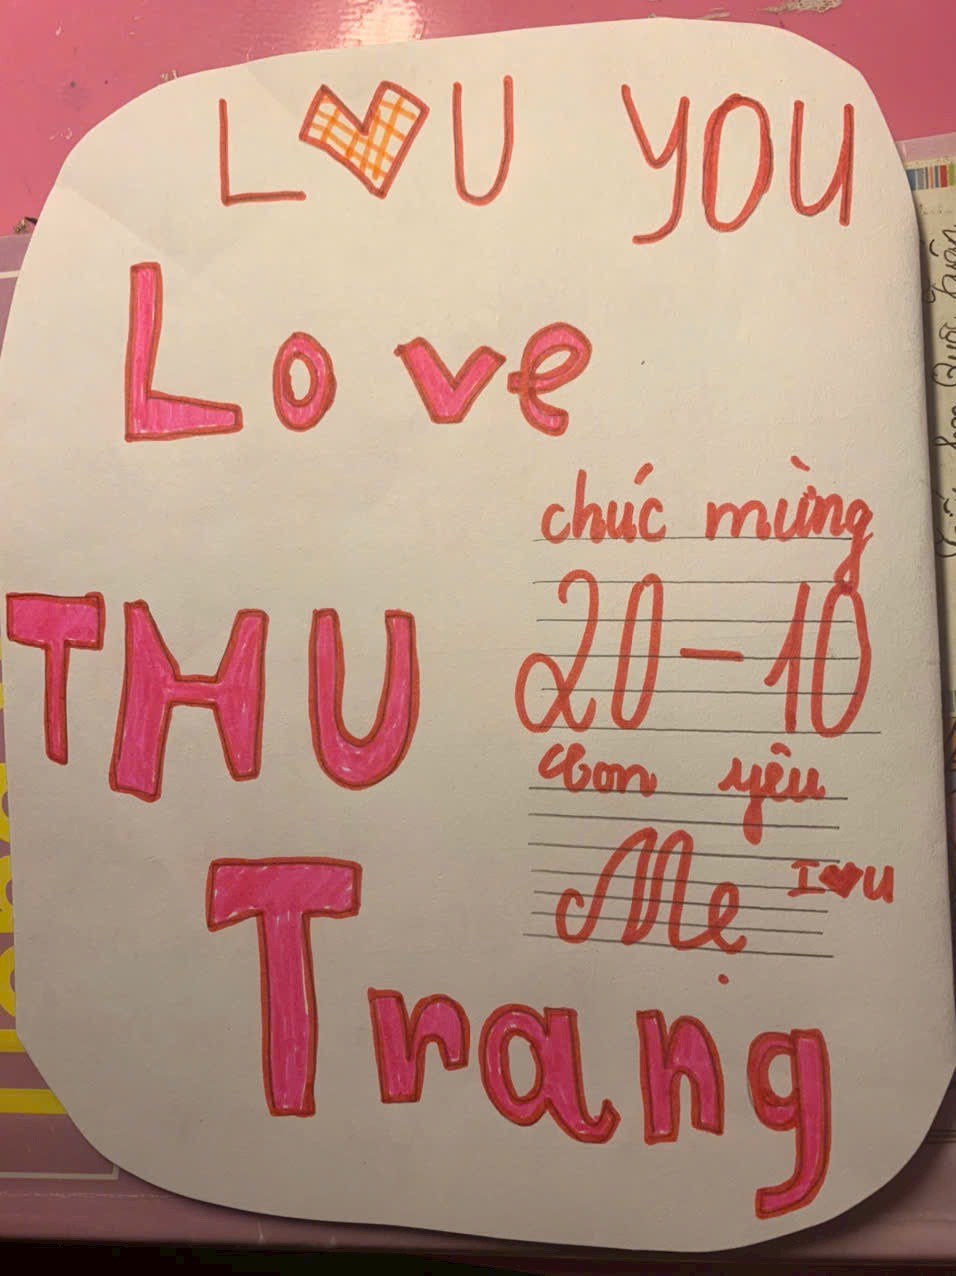 L♥U YOU
Love
chúc mừng
THU
20-10
Con yêu
Mẹ
I♥U
Trang